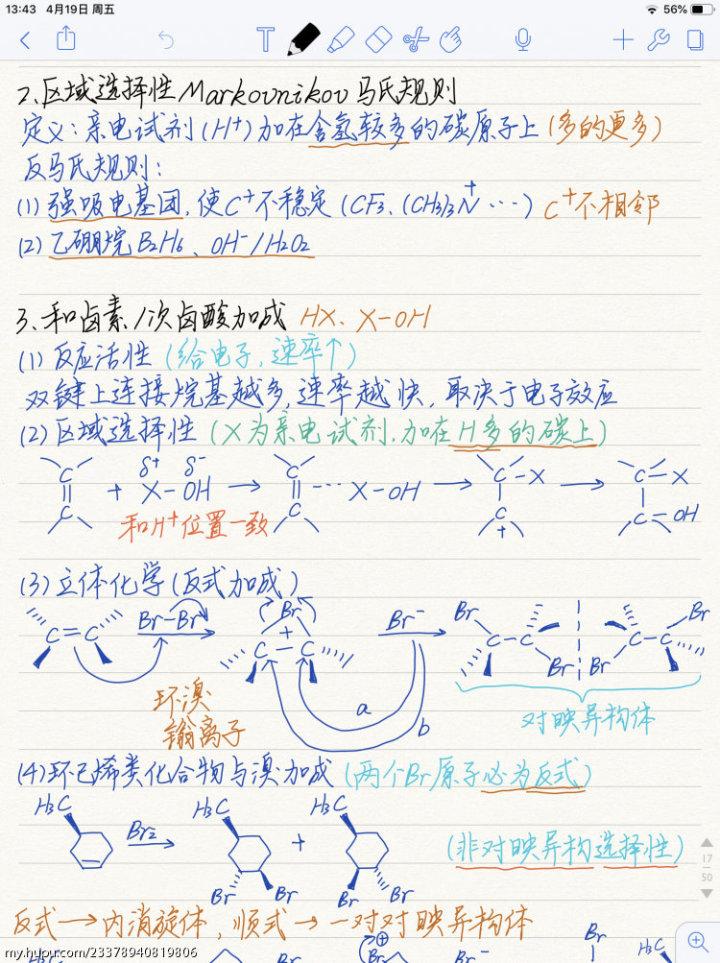 13:43 4月19日 周五
56%
2、区域选择性 Markovnikov 马氏规则
定义：亲电试剂(H⁺)加在含氢较多的碳原子上(多的更多)
反马氏规则：
(1) 强吸电基团, 使C⁺不稳定 (CF3、(CH3)3N⁺ …) C⁺不相邻
(2) 乙硼烷 B2H6、OH⁻/H2O2
3、和卤素/次卤酸加成 HX、X-OH
(1) 反应活性 (给电子, 速率↑)
双键上连接烷基越多, 速率越快, 取决于电子效应
(2) 区域选择性 (X为亲电试剂, 加在H多的碳上)
C C + δ⁺ δ⁻ X-OH → C C ··· X-OH → C-X C + → C X C OH
和H⁺位置一致
(3) 立体化学(反式加成)
C=C Br-Br Br + C-C Br⁻ Br C-C Br Br C-C Br
环溴
鎓离子
a
b
对映异构体
(4) 环己烯类化合物与溴加成 (两个Br原子必为反式)
H3C Br2 → H3C Br Br + H3C Br Br
(非对映异构选择性)
反式→内消旋体, 顺式→一对对映异构体
Br⊕ Br⁻ Br H3C
17
50
my.hupu.com/23378940819806